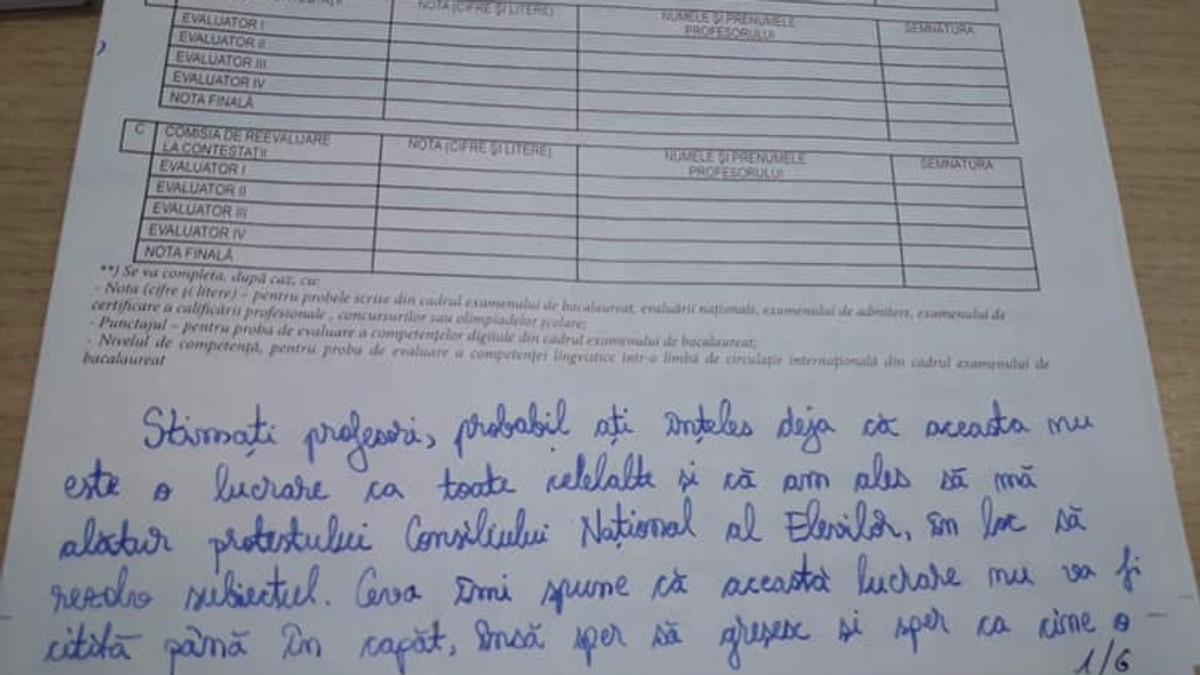 NOTA (CIFRE ȘI LITERE) NUMELE ȘI PRENUMELE PROFESORULUI SEMNĂTURA
EVALUATOR I
EVALUATOR II
EVALUATOR III
EVALUATOR IV
NOTA FINALĂ
C COMISIA DE REEVALUARE LA CONTESTAȚII NOTA (CIFRE ȘI LITERE) NUMELE ȘI PRENUMELE PROFESORULUI SEMNĂTURA
EVALUATOR I
EVALUATOR II
EVALUATOR III
EVALUATOR IV
NOTA FINALĂ
**) Se va completa, după caz, cu:
- Nota (cifre și litere) – pentru probele scrise din cadrul examenului de bacalaureat, evaluării naționale, examenului de admitere, examenului de
certificare a calificării profesionale , concursurilor sau olimpiadelor școlare;
- Punctajul – pentru proba de evaluare a competențelor digitale din cadrul examenului de bacalaureat;
- Nivelul de competență, pentru proba de evaluare a competenței lingvistice într-o limbă de circulație internațională din cadrul examenului de
bacalaureat
Stimați profesori, probabil ați înțeles deja că aceasta nu
este o lucrare ca toate celelalte și că am ales să mă
alătur protestului Consiliului Național al Elevilor, în loc să
rezolv subiectul. Ceva îmi spune că această lucrare nu va fi
citită până în capăt, însă sper să greșesc și sper ca cine o
1/6